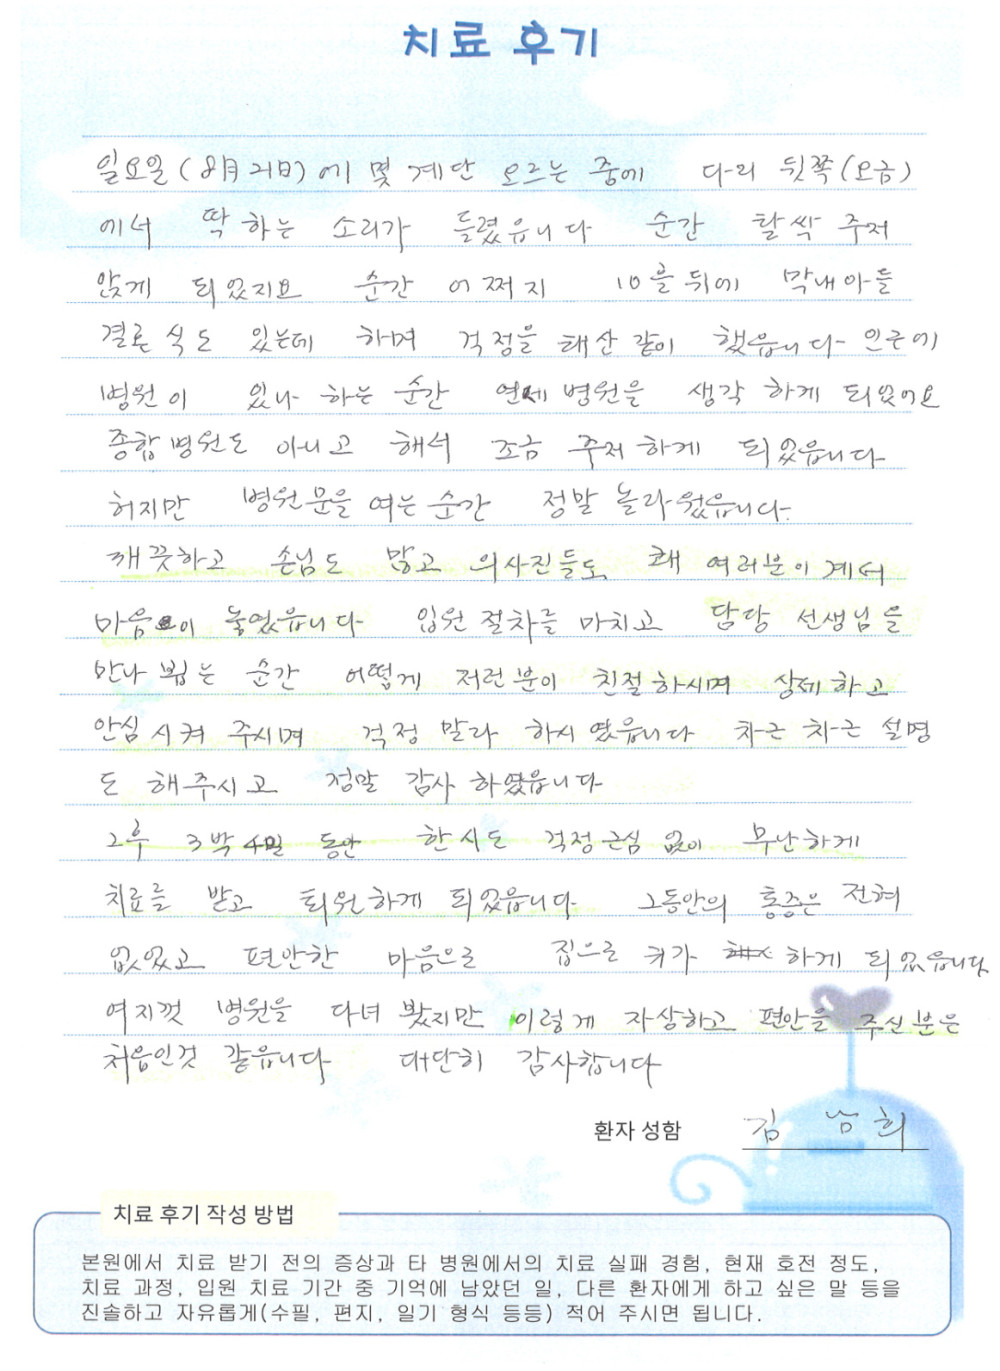 치료 후기
일요일(8月21日)에 몇 계단 오르는 중에 다리 뒷쪽(오금)
에서 딱 하는 소리가 들렸읍니다 순간 탈싹 주저
앉게 되었지요 순간 어쩌지 10을 뒤에 막내아들
결혼식도 있는데 하며 걱정을 태산 같이 했읍니다 인근에
병원이 있나 하는 순간 연세 병원을 생각 하게 되었어요
종합 병원도 아니고 해서 조금 주저 하게 되었읍니다
허지만 병원문을 여는 순간 정말 놀라웠읍니다.
깨끗하고 손님도 많고 의사진들도 꽤 여러분이 계셔
마음이 놓였읍니다 입원 절차를 마치고 담당 선생님을
만나 뵙는 순간 어떻게 저런분이 친절하시며 상세하고
안심 시켜 주시며 걱정 말라 하시였읍니다 차근 차근 설명
도 해주시고 정말 감사 하였읍니다
그후 3박 4일 동안 한시도 걱정근심 없이 무난하게
치료를 받고 퇴원하게 되었읍니다 그동안의 통증은 전혀
없었고 편안한 마음으로 집으로 귀가 하게 되었읍니다
여지껏 병원을 다녀 봤지만 이렇게 자상하고 편안을 주신분은
처음인것 같읍니다 대단히 감사합니다
환자 성함 김남희
치료 후기 작성 방법
본원에서 치료 받기 전의 증상과 타 병원에서의 치료 실패 경험, 현재 호전 정도,
치료 과정, 입원 치료 기간 중 기억에 남았던 일, 다른 환자에게 하고 싶은 말 등을
진솔하고 자유롭게(수필, 편지, 일기 형식 등등) 적어 주시면 됩니다.